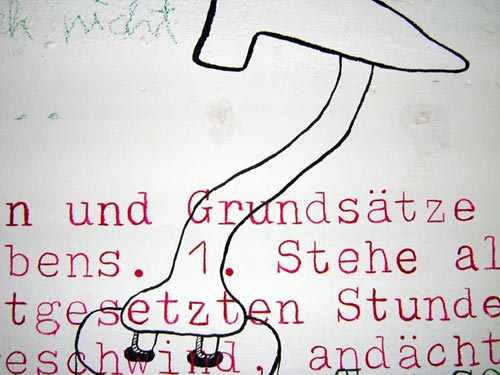 k nicht
n und Grundsätze
bens. 1. Stehe al
tgesetzten Stunde
eschwind, andächt